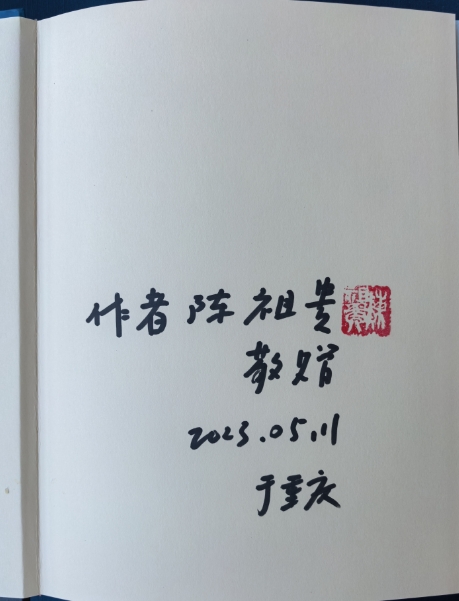 作者陈祖贵
敬赠
2023.05.11
于重庆